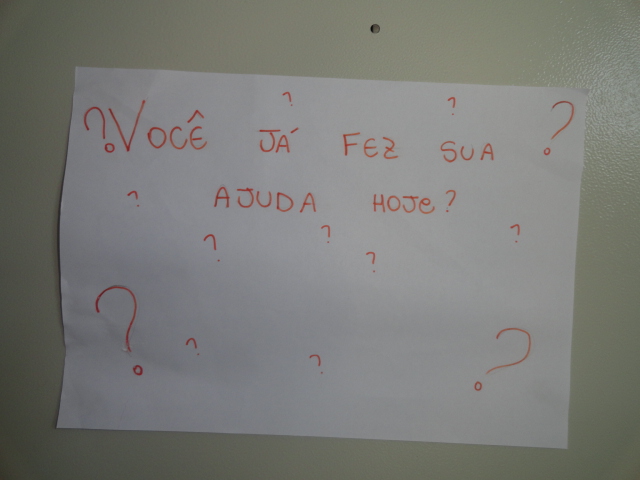 ? VOCÊ JÁ FEZ SUA ?
AJUDA HOJE?